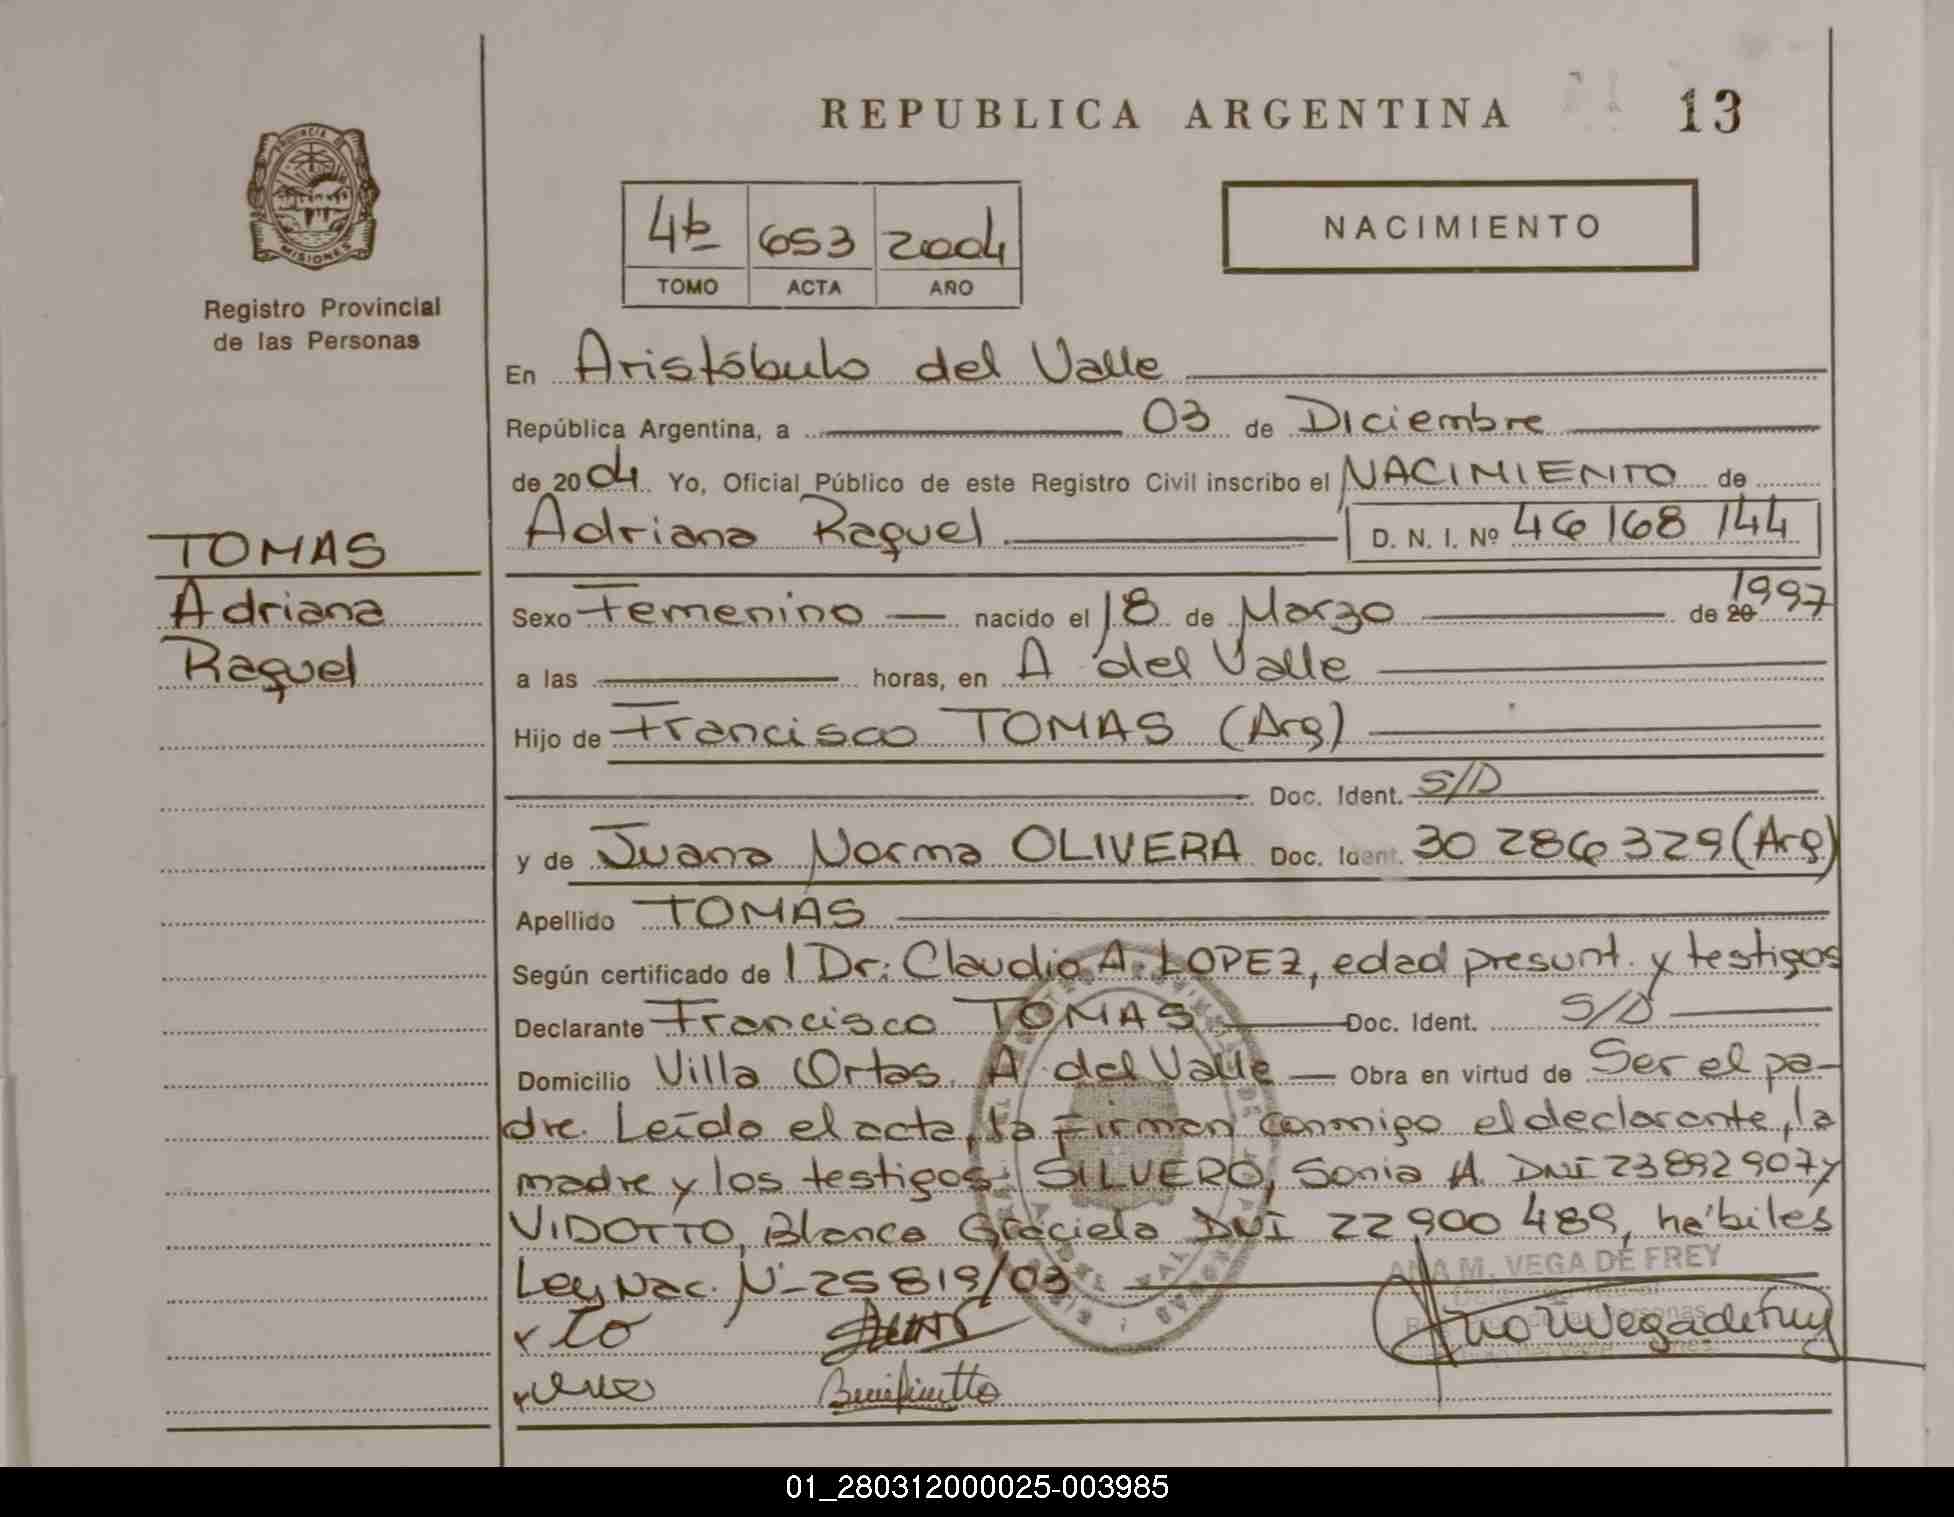 REPUBLICA ARGENTINA 13
PROVINCIA DE MISIONES
Registro Provincial
de las Personas
4b 653 2004
TOMO ACTA AÑO
NACIMIENTO
En Aristóbulo del Valle
República Argentina, a 03 de Diciembre
de 2004 Yo, Oficial Público de este Registro Civil inscribo el NACIMIENTO de
TOMAS
Adriana
Raquel
Adriana Raquel D. N. I. Nº 46 168 144
Sexo Femenino nacido el 18 de Marzo de 20 1997
a las horas, en A del Valle
Hijo de Francisco TOMAS (Arg)
Doc. Ident. S/D
y de Juana Norma OLIVERA Doc. Ident. 30 286 329 (Arg)
Apellido TOMAS
Según certificado de l Dr: Claudio A. LOPEZ, edad presunt. y testigos
Declarante Francisco TOMAS Doc. Ident. S/D
Domicilio Villa Ortas. A del Valle Obra en virtud de Ser el pa-
dre. Leído el acta, la firman conmigo el declarante, la
madre y los testigos: SILVERO, Sonia A. DNI 23892907 y
VIDOTTO, Blanca Graciela DNI 22 900 489, hábiles
Ley Nac. Nº 25819/03
ANA M. VEGA DE FREY
01_280312000025-003985